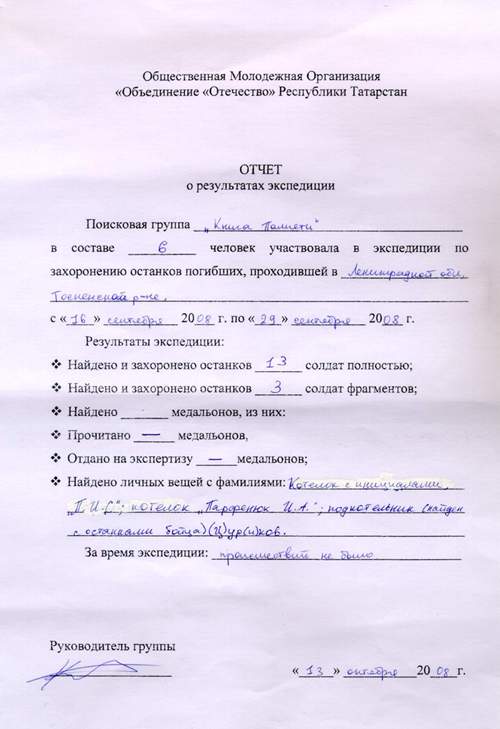 Общественная Молодежная Организация
«Объединение «Отечество» Республики Татарстан
ОТЧЕТ
о результатах экспедиции
Поисковая группа „Книга Памяти"
в составе 6 человек участвовала в экспедиции по
захоронению останков погибших, проходившей в Ленинградской обл,
Тосненский р-не.
с «16» сентября 2008 г. по «29» сентября 2008 г.
Результаты экспедиции:
❖ Найдено и захоронено останков 13 солдат полностью;
❖ Найдено и захоронено останков 3 солдат фрагментов;
❖ Найдено ______ медальонов, из них:
❖ Прочитано — медальонов,
❖ Отдано на экспертизу — медальонов;
❖ Найдено личных вещей с фамилиями: Котелок с инициалами
„П.И.С."; котелок „Парфенюк И.А."; подкотельник (найден
с останками бойца) (Ц)ур(и)ков.
За время экспедиции: происшествий не было
Руководитель группы
«13» октября 2008 г.